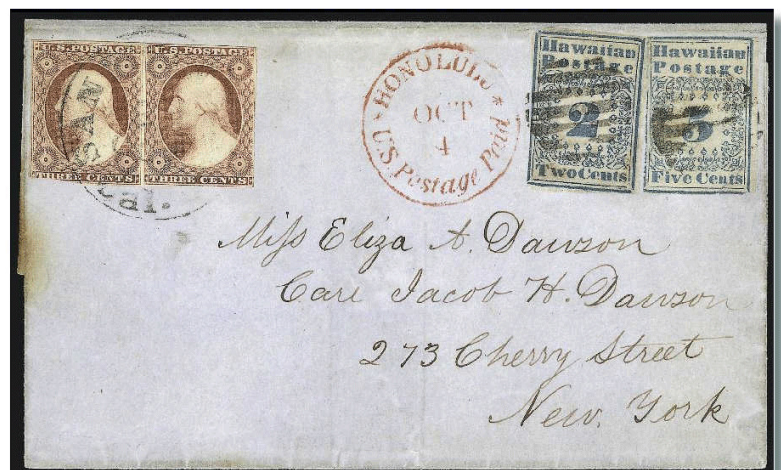 U.S. POSTAGE
THREE CENTS
U.S. POSTAGE
THREE CENTS
SAN
Cal.
HONOLULU
OCT
4
U.S. Postage Paid
Hawaiian
Postage
2
Two Cents
Hawaiian
Postage
5
Five Cents
Miss Eliza A. Dawson
Care Jacob H. Dawson
273 Cherry Street
New. York